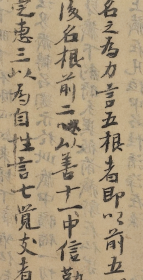 名之為力言五根者即以前五
後名根前二唯以善十一中信勤
定惠三以為自性言七覺支者